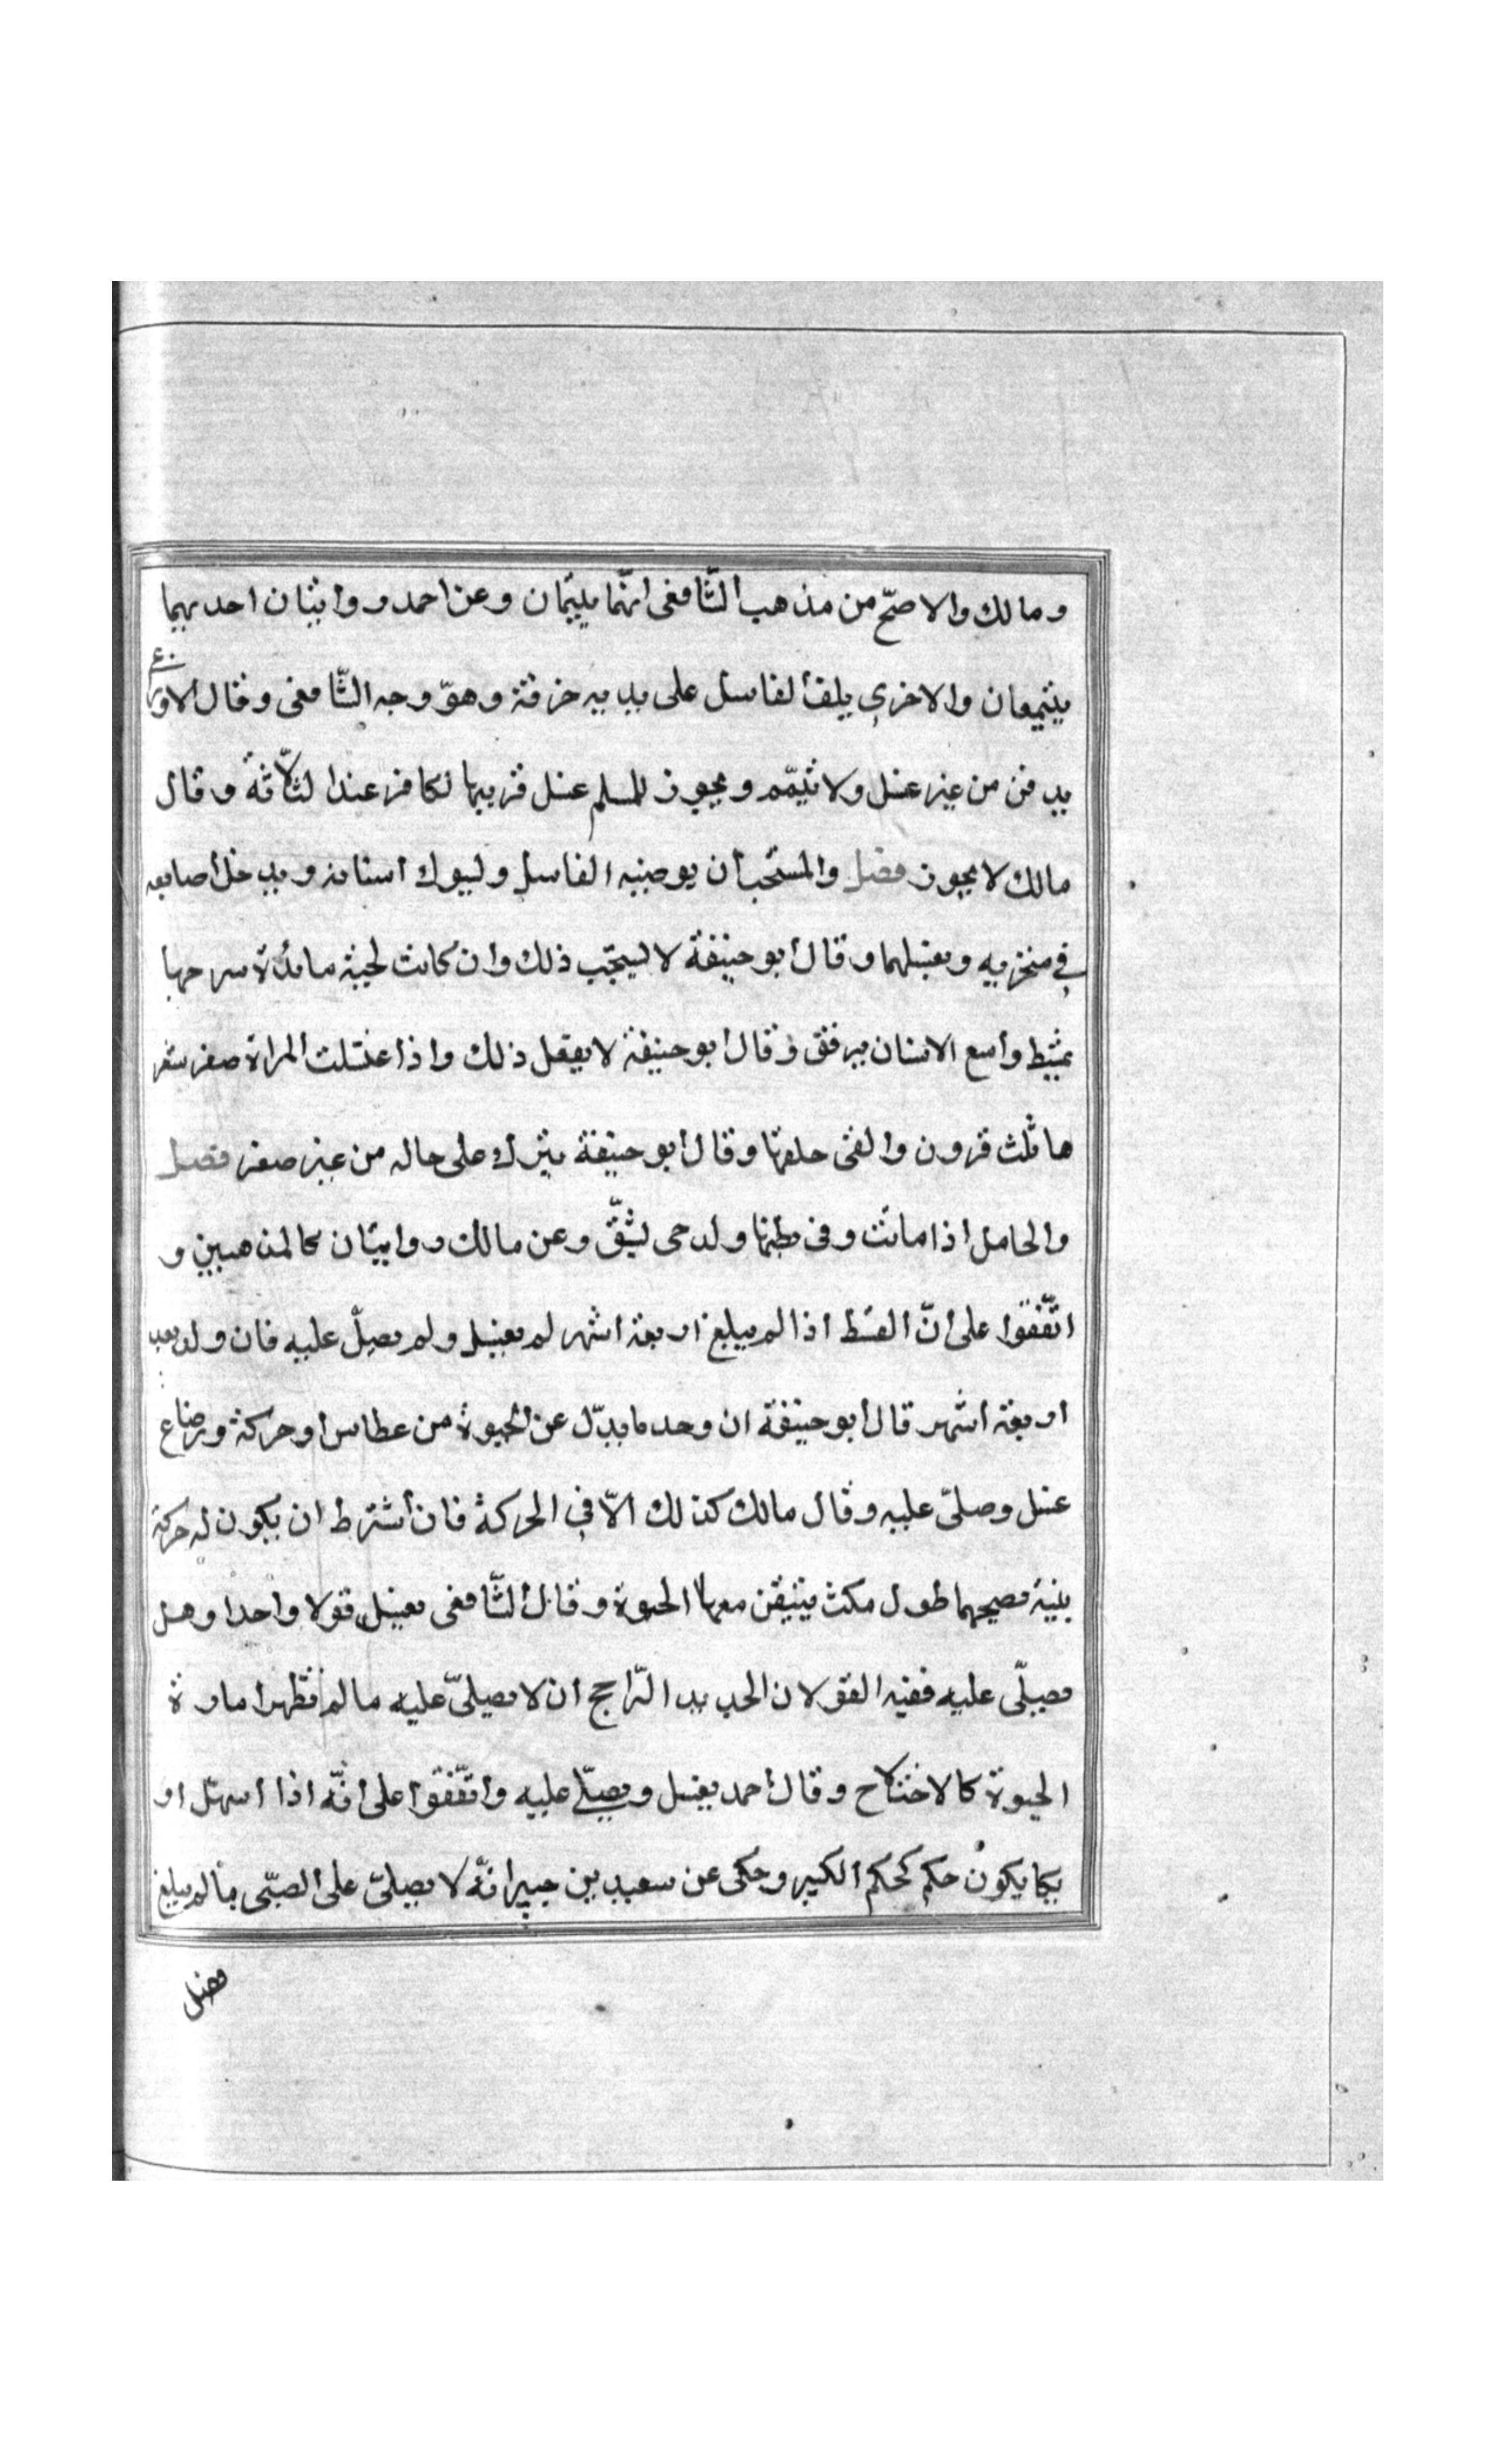 ومالك والاصحّ من مذهب الشّافعى انّهما ييمّمان وعن احمد روايتان احديهما
ييتيممان والاخرى يلف الغاسل على يديه خرقة وهو وجه الشّافعى وقال الاوزاعى
يدفن من غير غسل ولا تيمّم ويجوز للمسلم غسل قريبها لكافر عند الثّلاثة وقال
مالك لا يجوز فصل والمستحب أن يوضيه الغاسل وليسوك اسنانه ويدخل اصابعه
في منخريه ويغسلهما وقال أبو حنيفة لا يستحّب ذلك وان كانت لحيته ملبدّة سرحها
بمشط واسع الاسنان برفق وقال أبو حنيفة لا يفعل ذلك واذا غسّلت المراة ضفر شعر
ها ثلث قرون والقى خلفها وقال أبو حنيفة يترك على حاله من غير ضفر فصل
والحامل اذا ماتت وفى بطنها ولد حى يشقّ وعن مالك روايتان كالمذهبين و
اتّفقوا على انّ السقط اذا لم يبلغ اربعة اشهر لم يغسل ولم يصلّ عليه فان ولد بعد
اربعة اشهر قال أبو حنيفة ان وجد ما يدّل عن الحيوة من عطاس او حركة ورضاع
غسل وصلّى عليه وقال مالك كذلك الاّ في الحركة فان أشترط ان يكون له حركة
بنية يصحبهما طول مكث يتيقن معها الحيوة وقال الشّافعى يغسل قولا واحدا وهل
يصلّى عليه ففيه القولان الجديد الرّاجح ان لا يصلىّ عليه ما لم تظهر امارة
الحيوة كالاختلاج وقال أحمد يغسل ويصلّى عليه واتّفقوا على انّه اذا استهل او
بكا يكون حكم كحكم الكبير وحكى عن سعيد بن جبير انّه لا يصلىّ على الصبّى ما لم يبلغ
فصل